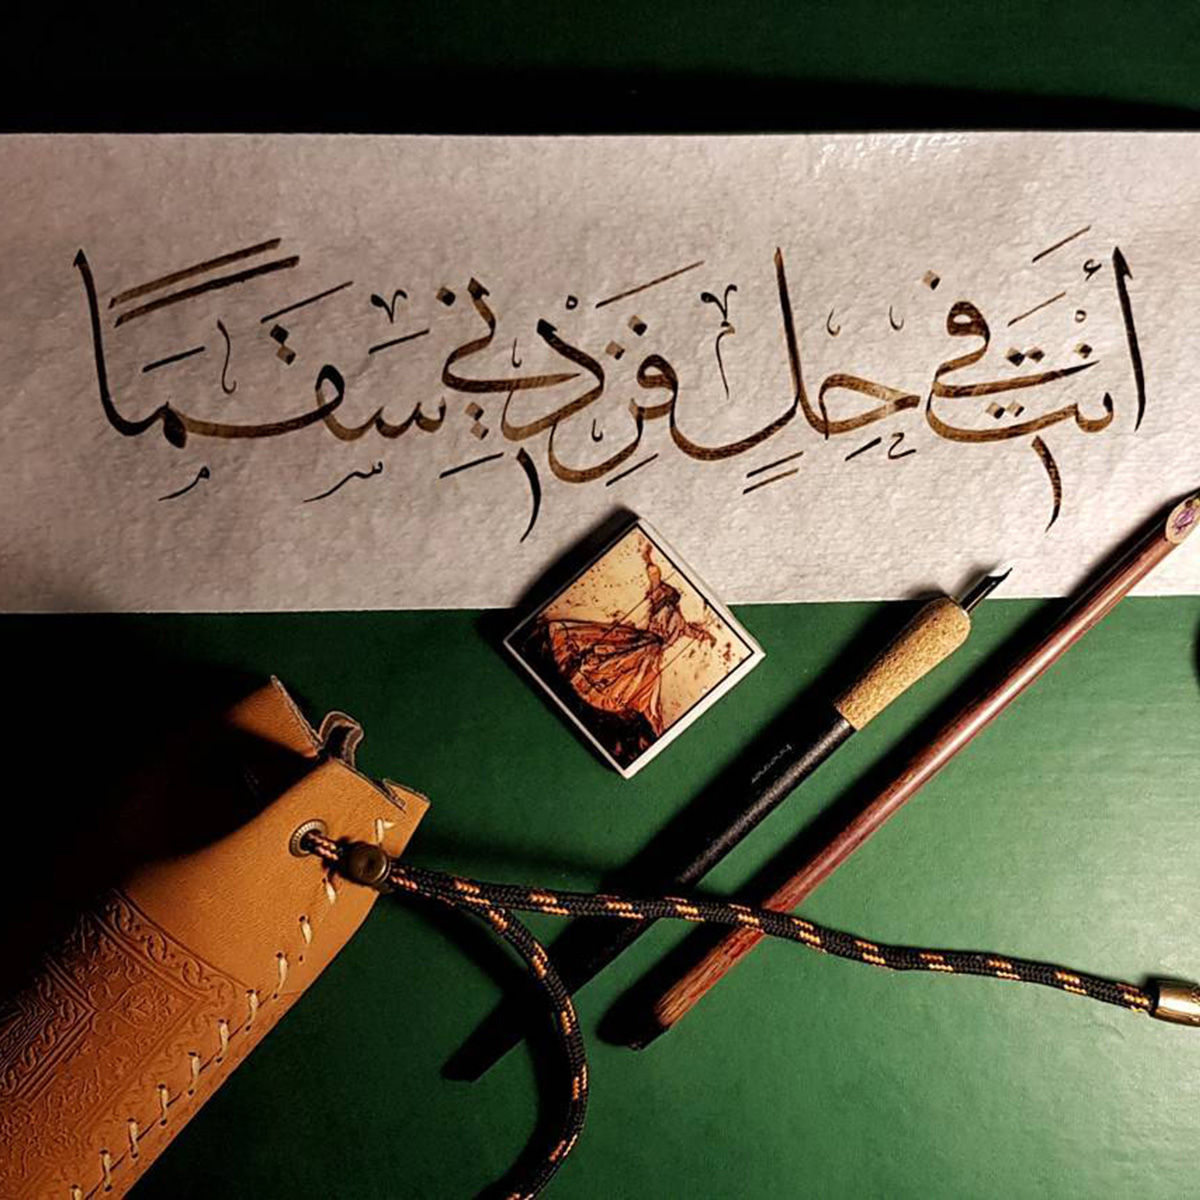 أَنْتَ في حِلٍ فَزِدْني سَقَمَاً